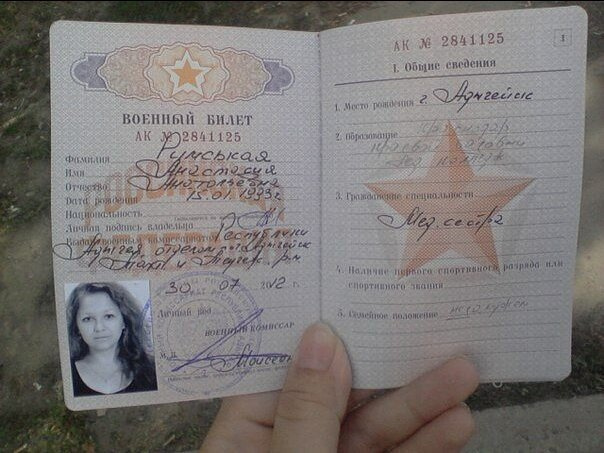 ВОЕННЫЙ БИЛЕТ
АК № 2841125
Фамилия Румськая
Имя Анастасия
Отчество Анатольевна
Дата рождения 15.01.1993г
Национальность
Личная подпись владельца
Выдан военным комиссариатом Республики
Адыгея, отделом по г. Адыгейск
Тахт. и Теучеж. р-м
30 07 2012 г.
Личный код
ВОЕННЫЙ КОМИССАР
М.П.
Моисеен
АК № 2841125
1
I. Общие сведения
1. Место рождения г. Адыгейск
2. Образование Краснодар
Мед. колледж
3. Гражданские специальности
Мед. сестра
4. Наличие первого спортивного разряда или
спортивного звания
5. Семейное положение не замужем